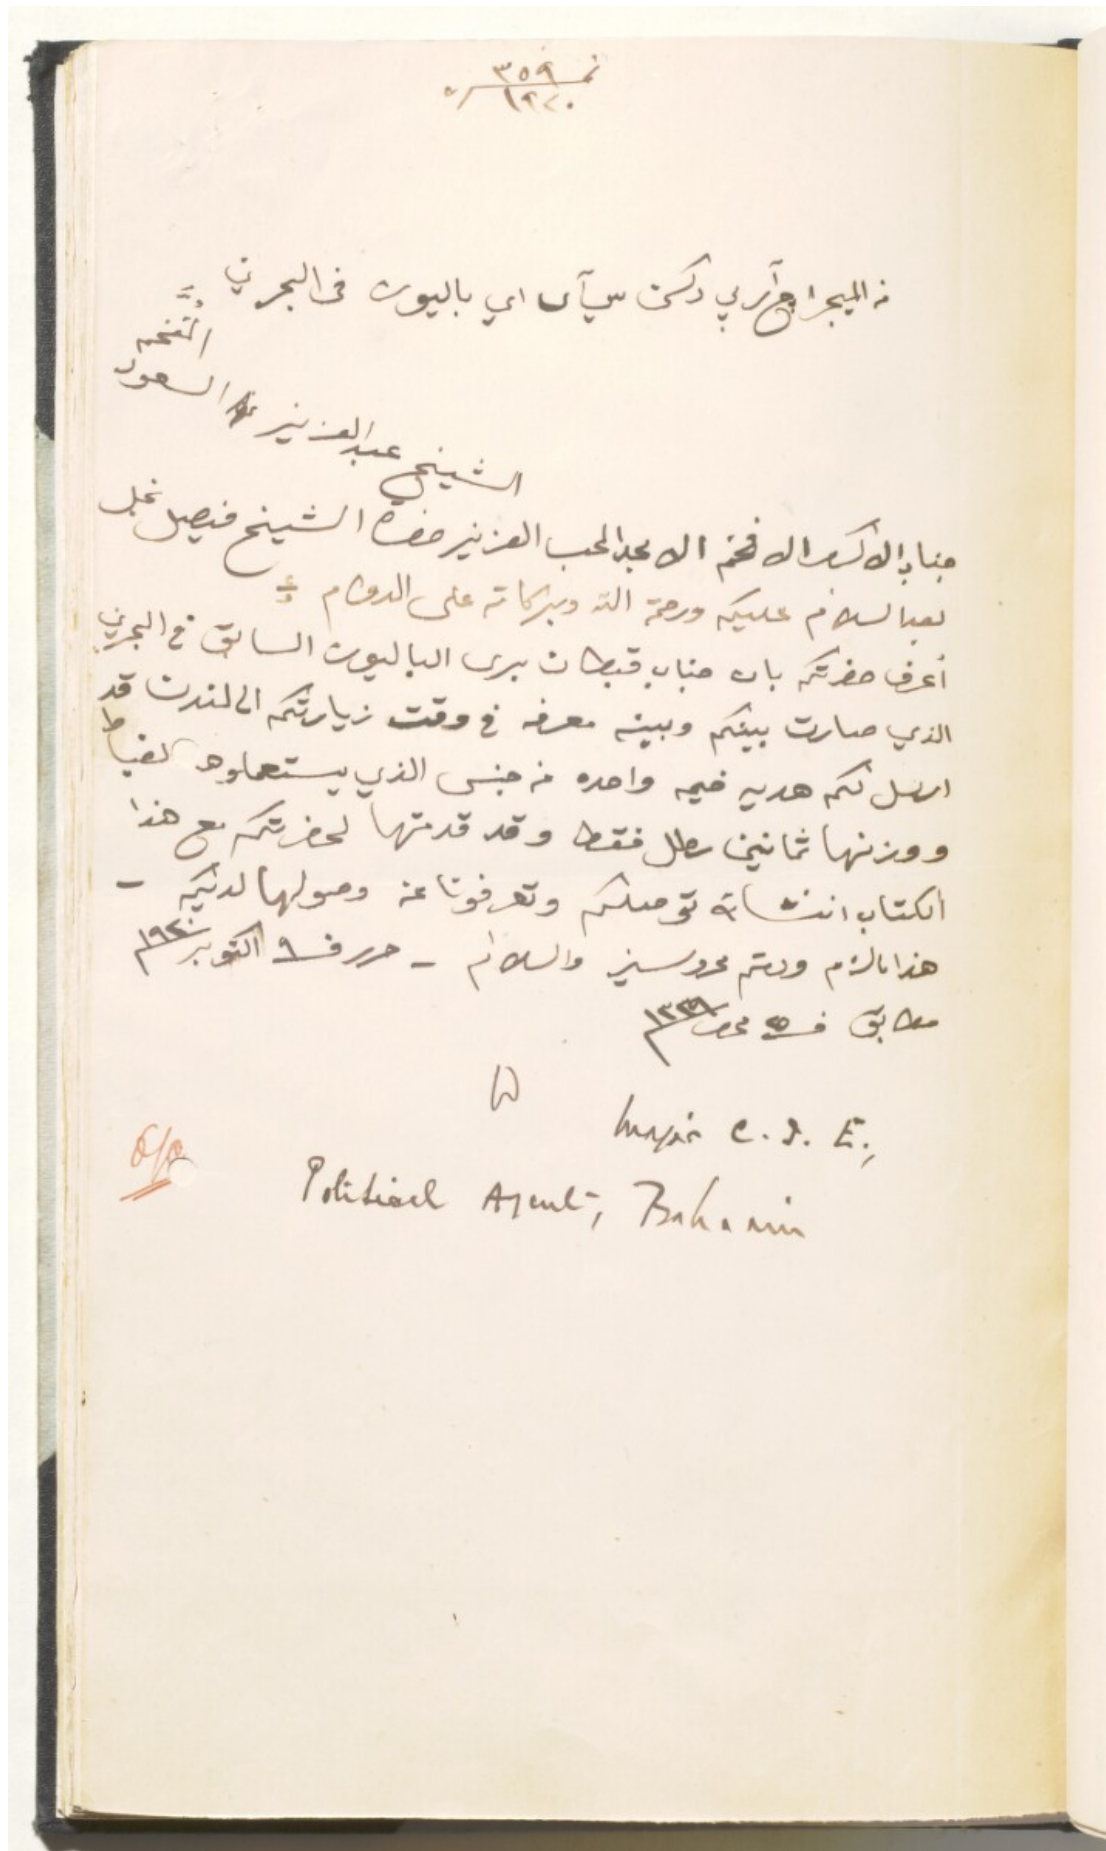 نمرة ٣٥٩
١٩٢٠
من الميجر اچ آر پي دكسن سي آى اي باليوز فى البحرين
جناب الاكرم الافخم الامجد المحب العزيز حضرة الشيخ فيصل نجل
الشيخ عبدالعزيز السعود
المفخم
بعد السلام عليكم ورحمة الله وبركاته على الدوام
اعرف حضرتكم بان جناب قبطان بري الباليوز السابق في البحرين
الذي صارت بينكم وبينه معرفه في وقت زيارتكم الى لندن قد
ارسل لكم هديه خيمه واحده من جنس الذي يستعملوها الضباط
ووزنها ثمانين رطل فقط وقد قدمتها لحضرتكم مع هذا
الكتاب انشاالله توصلكم وتعرفونا عن وصولها لديكم -
هذا مالزم ودمتم محروسين والسلام - حرر في ٩ اكتوبر ١٩٢٠م
مطابق في ٢٥ محرم ١٣٣٩
Major C.I.E.,
Political Agent, Bahrain